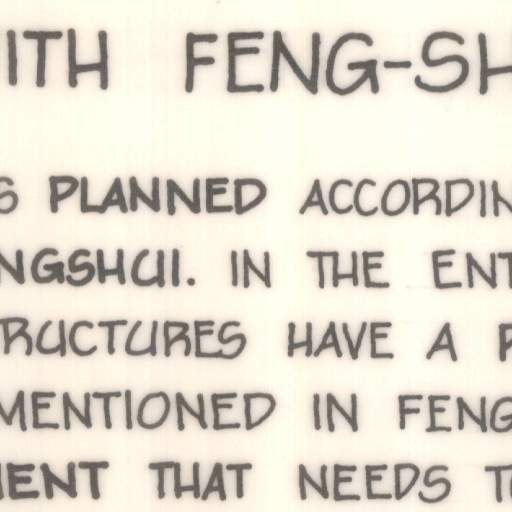 ITH FENG-SH
S PLANNED ACCORDIN
NGSHUI. IN THE ENT
TRUCTURES HAVE A P
MENTIONED IN FENG
MENT THAT NEEDS TO